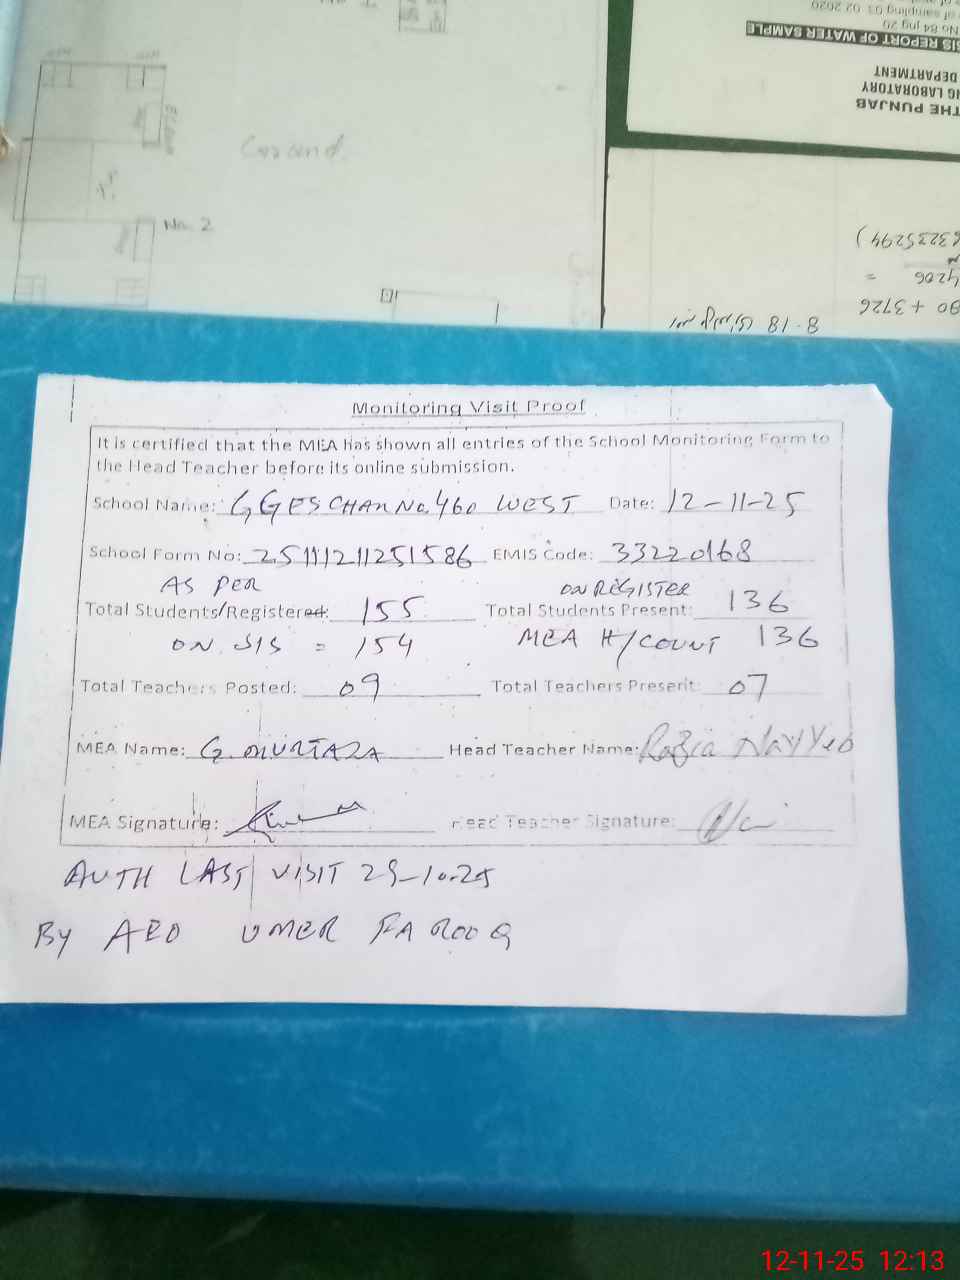 THE PUNJAB
NG LABORATORY
DEPARTMENT
SIS REPORT OF WATER SAMPLE
No 84 jng 20
of sampling 03 02 2020
Ground
No. 2
63235294)
4206 =
90 + 3726
8.18
Monitoring Visit Proof
It is certified that the MEA has shown all entries of the School Monitoring Form to
the Head Teacher before its online submission.
School Name: GGES CHAK No. 460 WEST Date: 12-11-25
School Form No: 25111211251586 EMIS Code: 33220168
AS PER ON REGISTER
Total Students/Registered: 155 Total Students Present: 136
ON SIS = 154 MEA H/COUNT 136
Total Teachers Posted: 09 Total Teachers Present: 07
MEA Name: G. MURTAZA Head Teacher Name: Razia Nayyeb
MEA Signature: Head Teacher Signature:
AUTH LAST VISIT 29-10-25
By AEO UMER FAROOQ
12-11-25 12:13